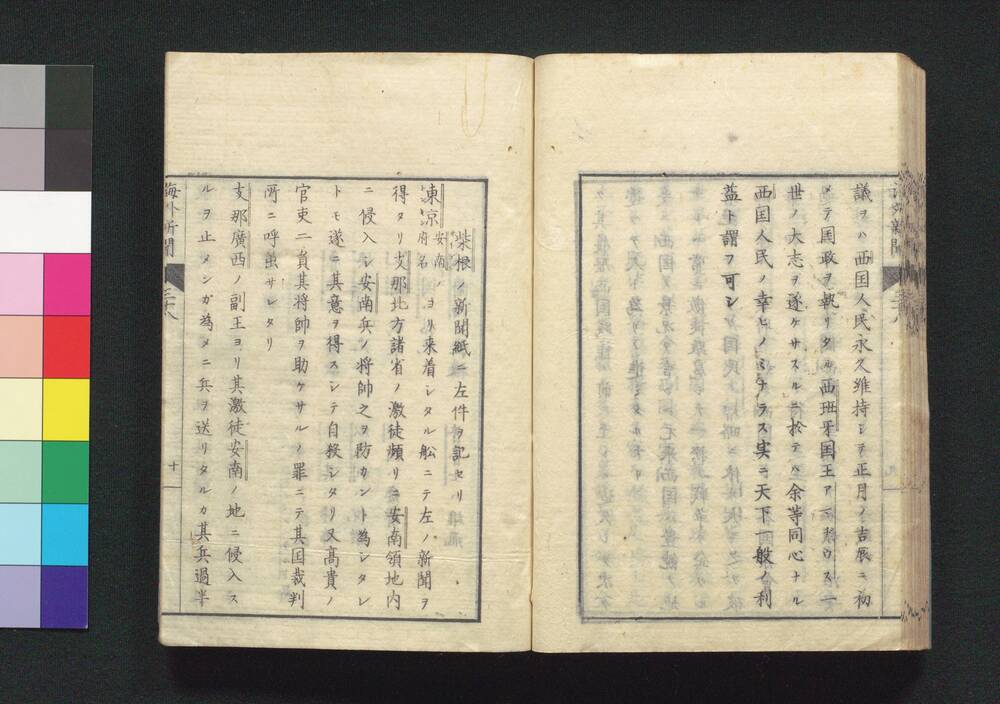 議ヲハ西国人民永久維持シテ正月ノ吉辰ニ初
メテ国政ヲ執リタル西班牙国王ア
世ノ大志ヲ遂ケサスルニ於テハ余等同心ナル
西国人民ノ幸ヒノミナラス実ニ天下一般ノ利
益ト謂フ可シ
柴根ノ新聞紙ニ左件ヲ記セリ
東京安南ノ府名ヨリ来着シタル舩ニテ左ノ新聞ヲ
得タリ支那北方諸省ノ激徒頻リニ安南領地内
ニ侵入シ安南兵ノ将帥之ヲ防カント為シタレ
トモ遂ニ其意ヲ得スシテ自殺シタリ又高貴ノ
官吏二員其将帥ヲ助ケサルノ罪ニテ其国裁判
所ニ呼出サレタリ
支那廣西ノ副王ヨリ其激徒安南ノ地ニ侵入ス
ルヲ止メンガ為メニ兵ヲ送リタルカ其兵過半
海外新聞
十一